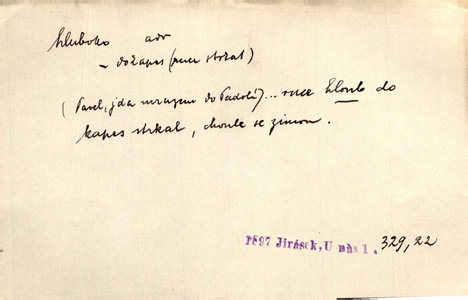 hluboko adv
~ do kapes (ruce strkal)
(Pavel, jda mrazem do Padolí)... ruce hloub do
kapes strkal, choule se zimou.
1897 Jirásek, U nás 1. 329,22